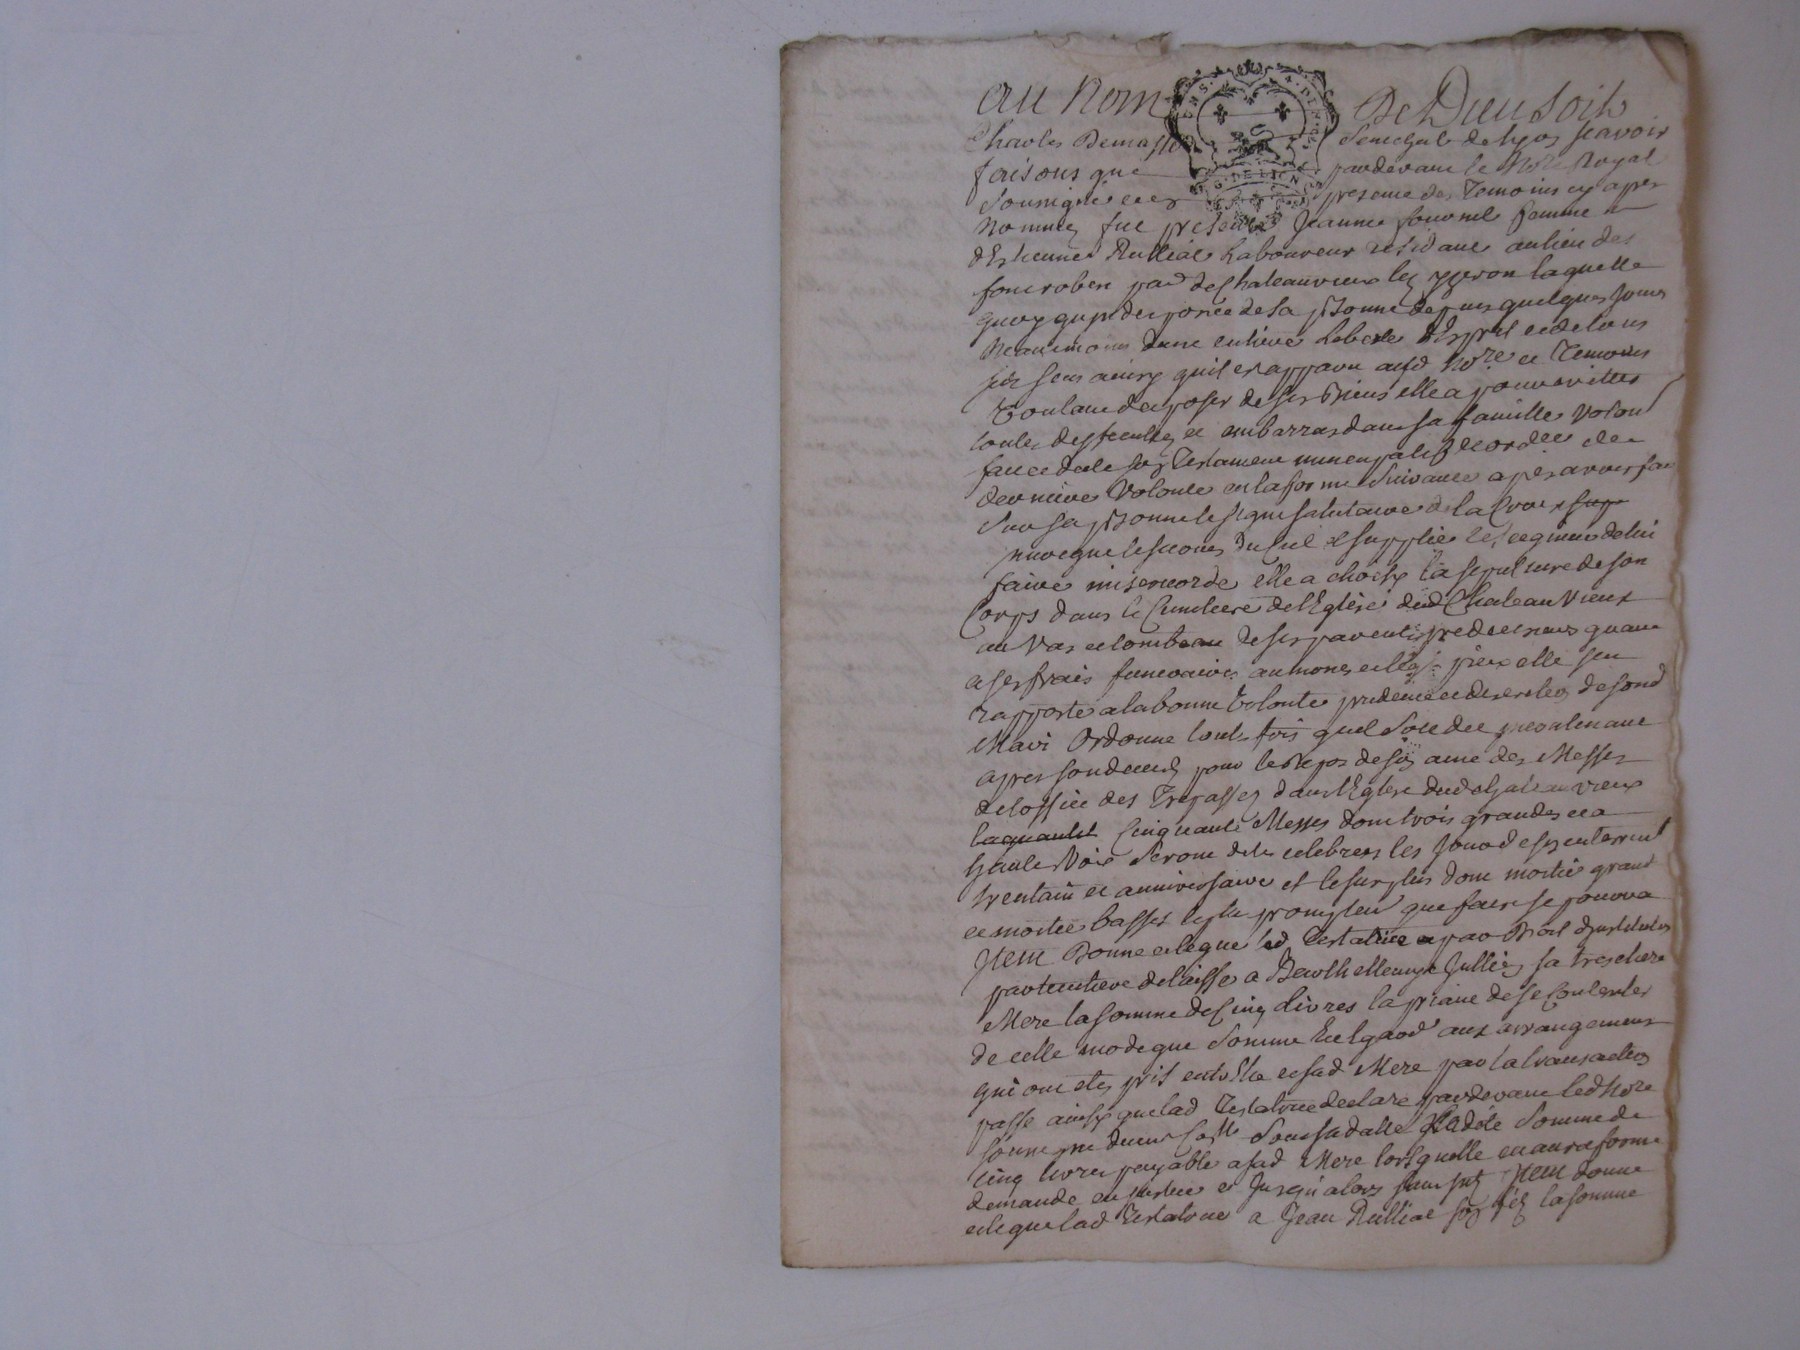 au Nom De Dieu soit
Charles Demasso Senechal de Lyon scavoir
faisons que pardevant le Nore Royal
soussigné et en presence des Temoins cy apres
Nommez fut presente Jeanne femme
d'Estienne Rulliat Laboureur residant au lieu de
font robert par de Chateauvieux les yzeron laquelle
quoy qu'indisposée de sa psonne depuis quelques Jours
Neanmoins dans entiere Liberté d'Esprit et de tous
ses sens ainsy quil est apparu aud Nore et Temoins
Voulant disposer de ses Biens elle a pour eviter
toutes difficultez et embarras dans sa famille Volont
fait et dicté son Testament nuncupatif et ordce de
derniere Volonté en la forme suivante apres avoir fait
sur sa psonne le signe salutaire de la Croix sup
invoqué le secours du Ciel et supplié le seigneur de lui
faire misericorde elle a choisy la sepulture de son
Corps dans le Cimetiere de l'Eglise dud Chateau Vieux
au Vas et tombeau de ses parents predecesseurs quant
a ses frais funeraires aumones et legs pieux elle s'en
rapporte a la bonne Volonté prudence et discretion de sond
Mari Ordonne toutefois quil soit dit incontinant
apres son deces pour le Repos de son ame des Messes
de loffice des Trepassez dans l'Eglise dud Chateau vieux
Cinquante Messes dont trois grandes et a
haute Voix seront dites celebrees les Jours de son enterrement
trentain et anniversaire et le surplus dont moitié grand
et moitié basses le plus promptement que faire se pourra
Item Donne et legue lad Testatrice par droit d'institution
particuliere delaisse a Barthellemye Jullien sa tres chere
Mere la somme de Cinq livres la priant de se Contenter
de cette modique somme En Egard aux arrangemens
qui ont etez pris entre Elle et sad Mere par la transaction
passé ainsy que lad Testatrice declare pardevant led Nore
soussigné sous sa datte lad somme de
cinq livres payable a sad Mere lorsquelle en aura formé
demande en justice et Jusqu'alors sans jnt Item donne
et legue lad Testatrice a Jean Rulliat son fils la somme